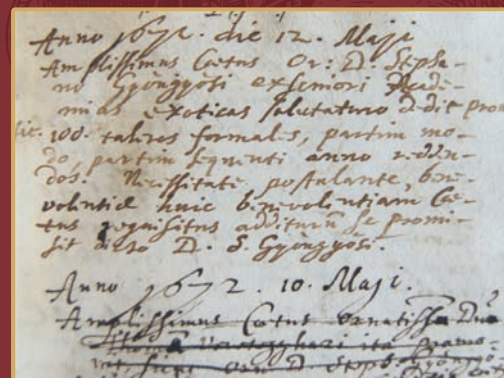 Anno 1672. die 12. Maji
Amplissimus Cœtus Or: D. Stepha-
no Gyöngyösi exseniori Acade-
mias exoticas salutaturo dedit pro
100. taleros formales, partim mo-
do partim sequenti anno redden-
dos. Necessitate postulante, bene-
volentiæ huic benevolentiam Cœ-
tus requisitus additurū se promi-
sit dicto D. S. Gyöngyösi.
Anno 1672. 10. Maji.
Amplissimus Cœtus ornatissō Dnō
ita promo-
D Steph Gyöngyö-